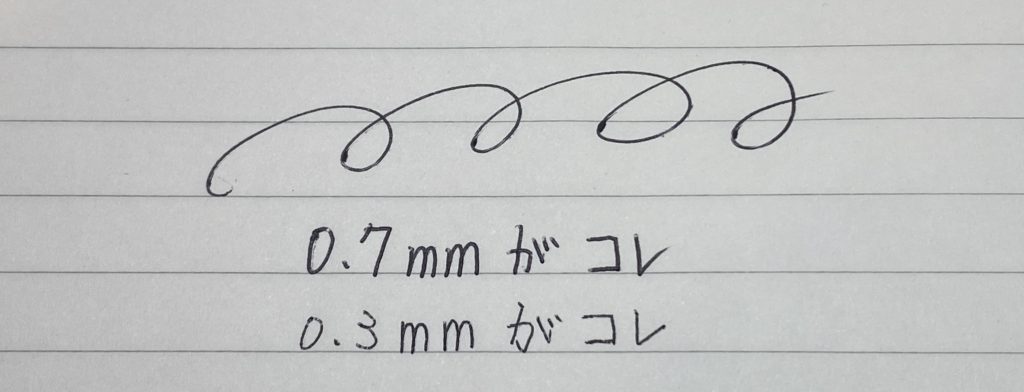 0.7mmがコレ
0.3mmがコレ